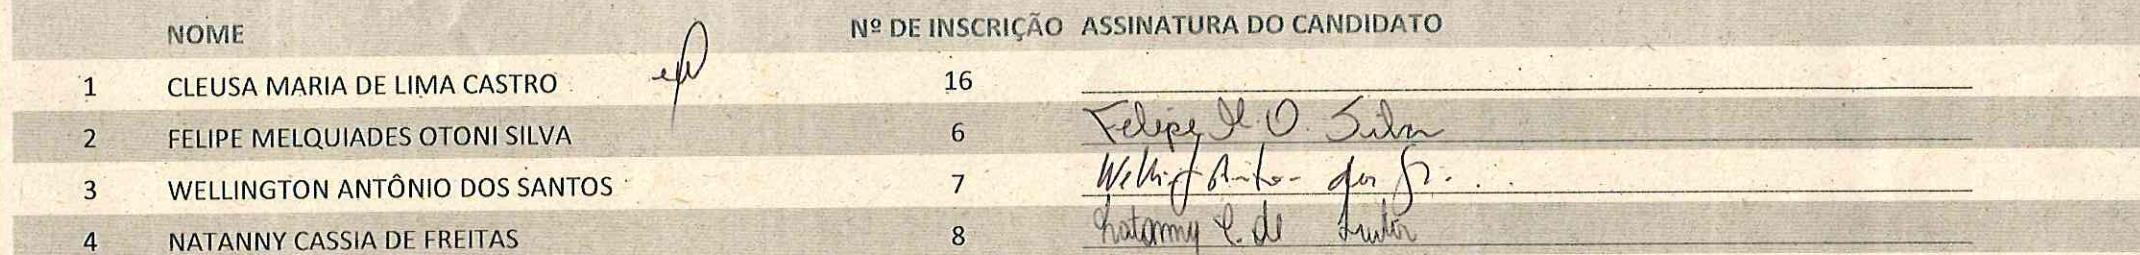 NOME Nº DE INSCRIÇÃO ASSINATURA DO CANDIDATO
1 CLEUSA MARIA DE LIMA CASTRO 16
2 FELIPE MELQUIADES OTONI SILVA 6 Felipe M. O. Silva
3 WELLINGTON ANTÔNIO DOS SANTOS 7
4 NATANNY CASSIA DE FREITAS 8 Natanny C. de